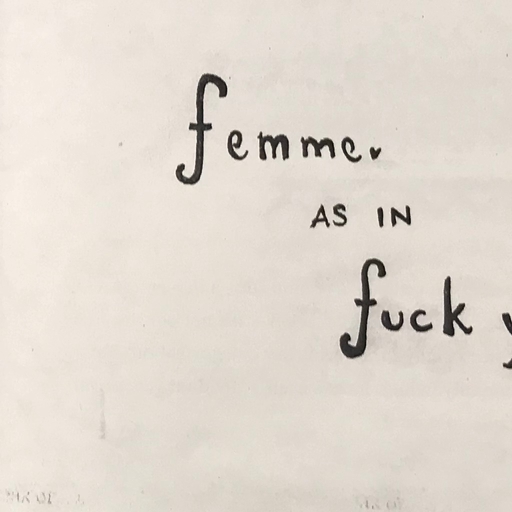 femme
AS IN
fuck y